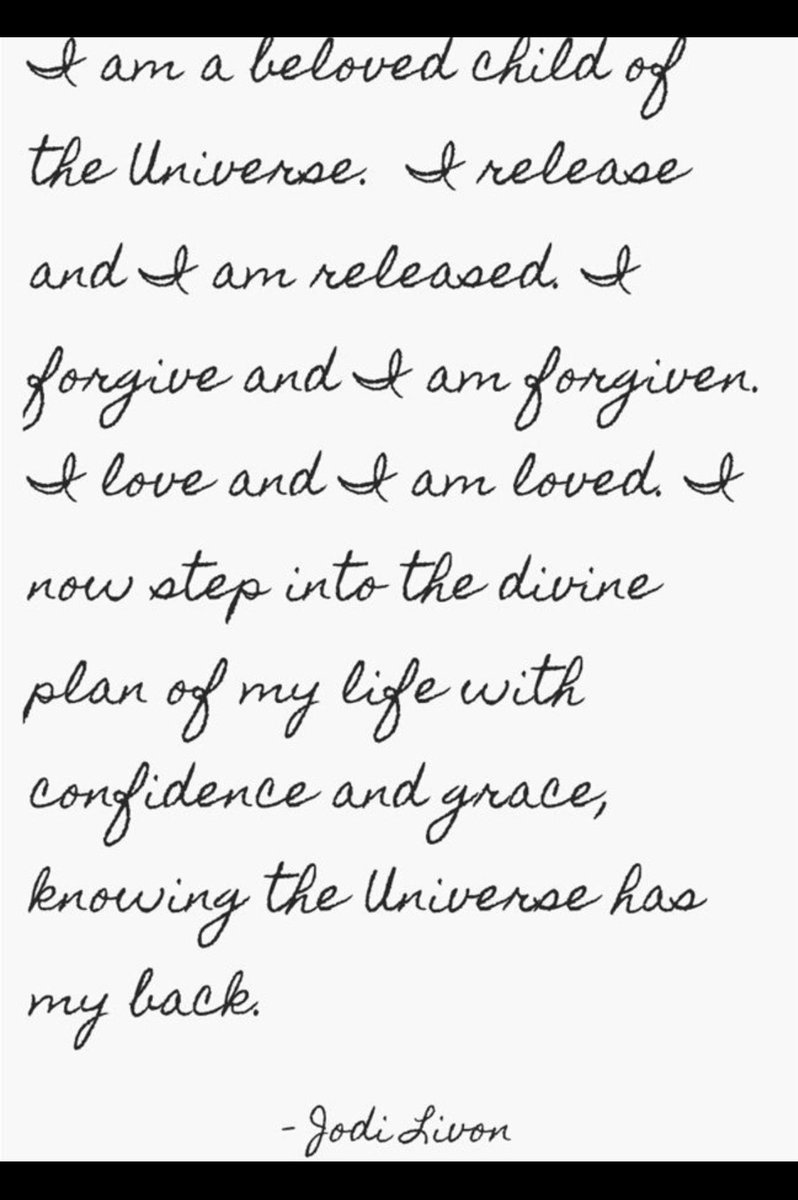 I am a beloved child of
the Universe. I release
and I am released. I
forgive and I am forgiven.
I love and I am loved. I
now step into the divine
plan of my life with
confidence and grace,
knowing the Universe has
my back.
- Jodi Livon